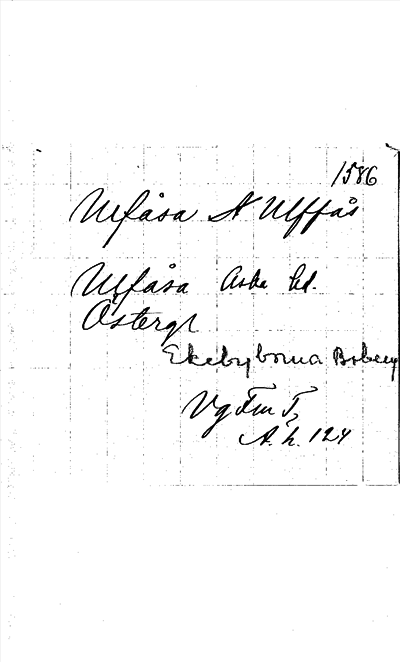 1586
Ulfåsa N Ulffås
Ulfåsa Aska hd.
Östergl
Ekebyborna Boberg
Vg Fm T,
A. h. 124